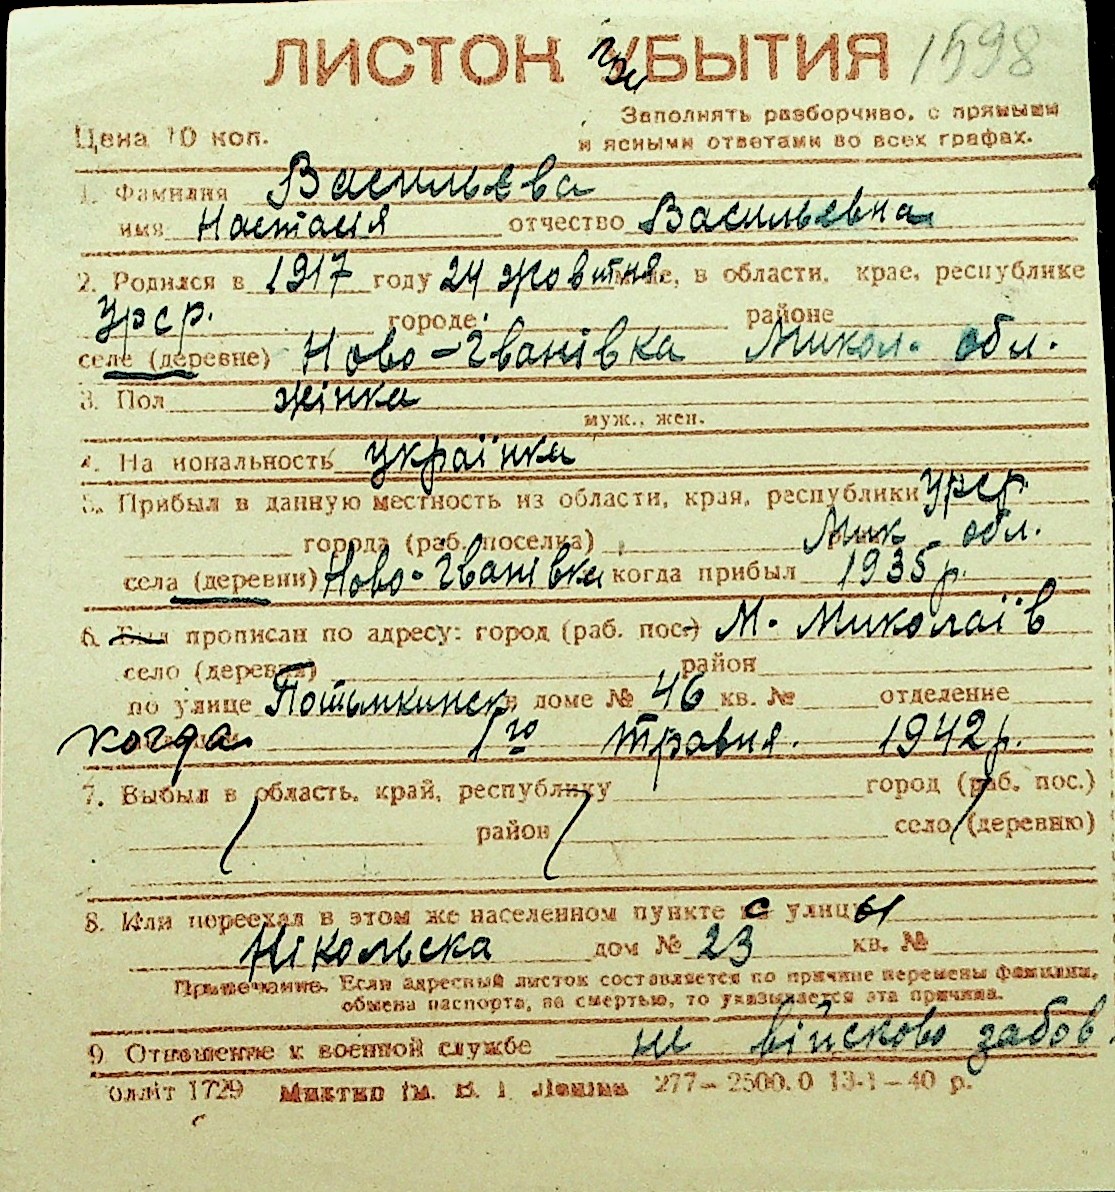 ЛИСТОК УБЫТИЯ 1598
Цена 10 коп.
Заполнять разборчиво, с прямыми
и ясными ответами во всех графах.
1. Фамилия Васильєва
имя Настасія отчество Васильевна
2. Родился в 1917 году 24 жовтня, в области, крае, республике
УРСР. городе районе
селе (деревне) Ново-Іванівка Микол. обл.
3. Пол жінка
муж., жен.
4. На иональность українка
5. Прибыл в данную местность из области, края, республики УРСР
города (раб. поселка) Мик. обл.
села (деревни) Ново-Іванівка когда прибыл 1935 р.
6. Был прописан по адресу: город (раб. пос.) М. Миколаїв
село (деревня) район
по улице Потьмкинск в доме № 46 кв. № отделение
когда 1го травня. 1942 р.
7. Выбыл в область, край, республику город (раб. пос.)
район село (деревню)
8. Или переехал в этом же населенном пункте с улицы
Нікольска дом № 23 кв. №
Примечание. Если адресный листок составляется по причине перемены фамилии,
обмена паспорта, за смертью, то указывается эта причина.
9 Отношение к военной службе не військово забов.
Оллiт 1729 Миктип ім. В. І. Леніна 277—2500.0 13-1—40 р.